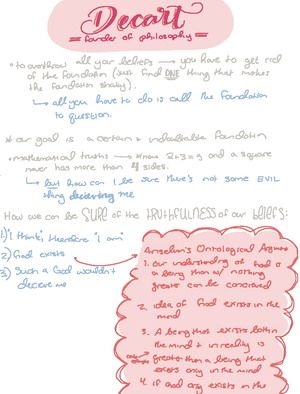 Decart
founder of philosophy
• to overthrow all your beliefs → you have to get rid
of the foundation (just find ONE thing that makes
the foundation shaky).
↳ all you have to do is call the foundation
to question.
* our goal is a certain + indubitable foundation
• mathematical truths → know 2+3=5 and a square
never has more than 4 sides.
↳ but how can I be sure there's not some EVIL
thing deceiving me
How we can be SURE of the TRUTHFULNESS of our beliefs:
1) "I think, therefore "I am"
2) God exists
3) Such a God wouldn't
deceive me
Anselm's Ontological Argume
1. Our understanding of God is
a being than w/ nothing
greater can be conceived
2. idea of God exists in the
mind
3. A being that exists both in
the mind + in reality is
greater than a being that
exists only in the mind
4. if God only exists in the